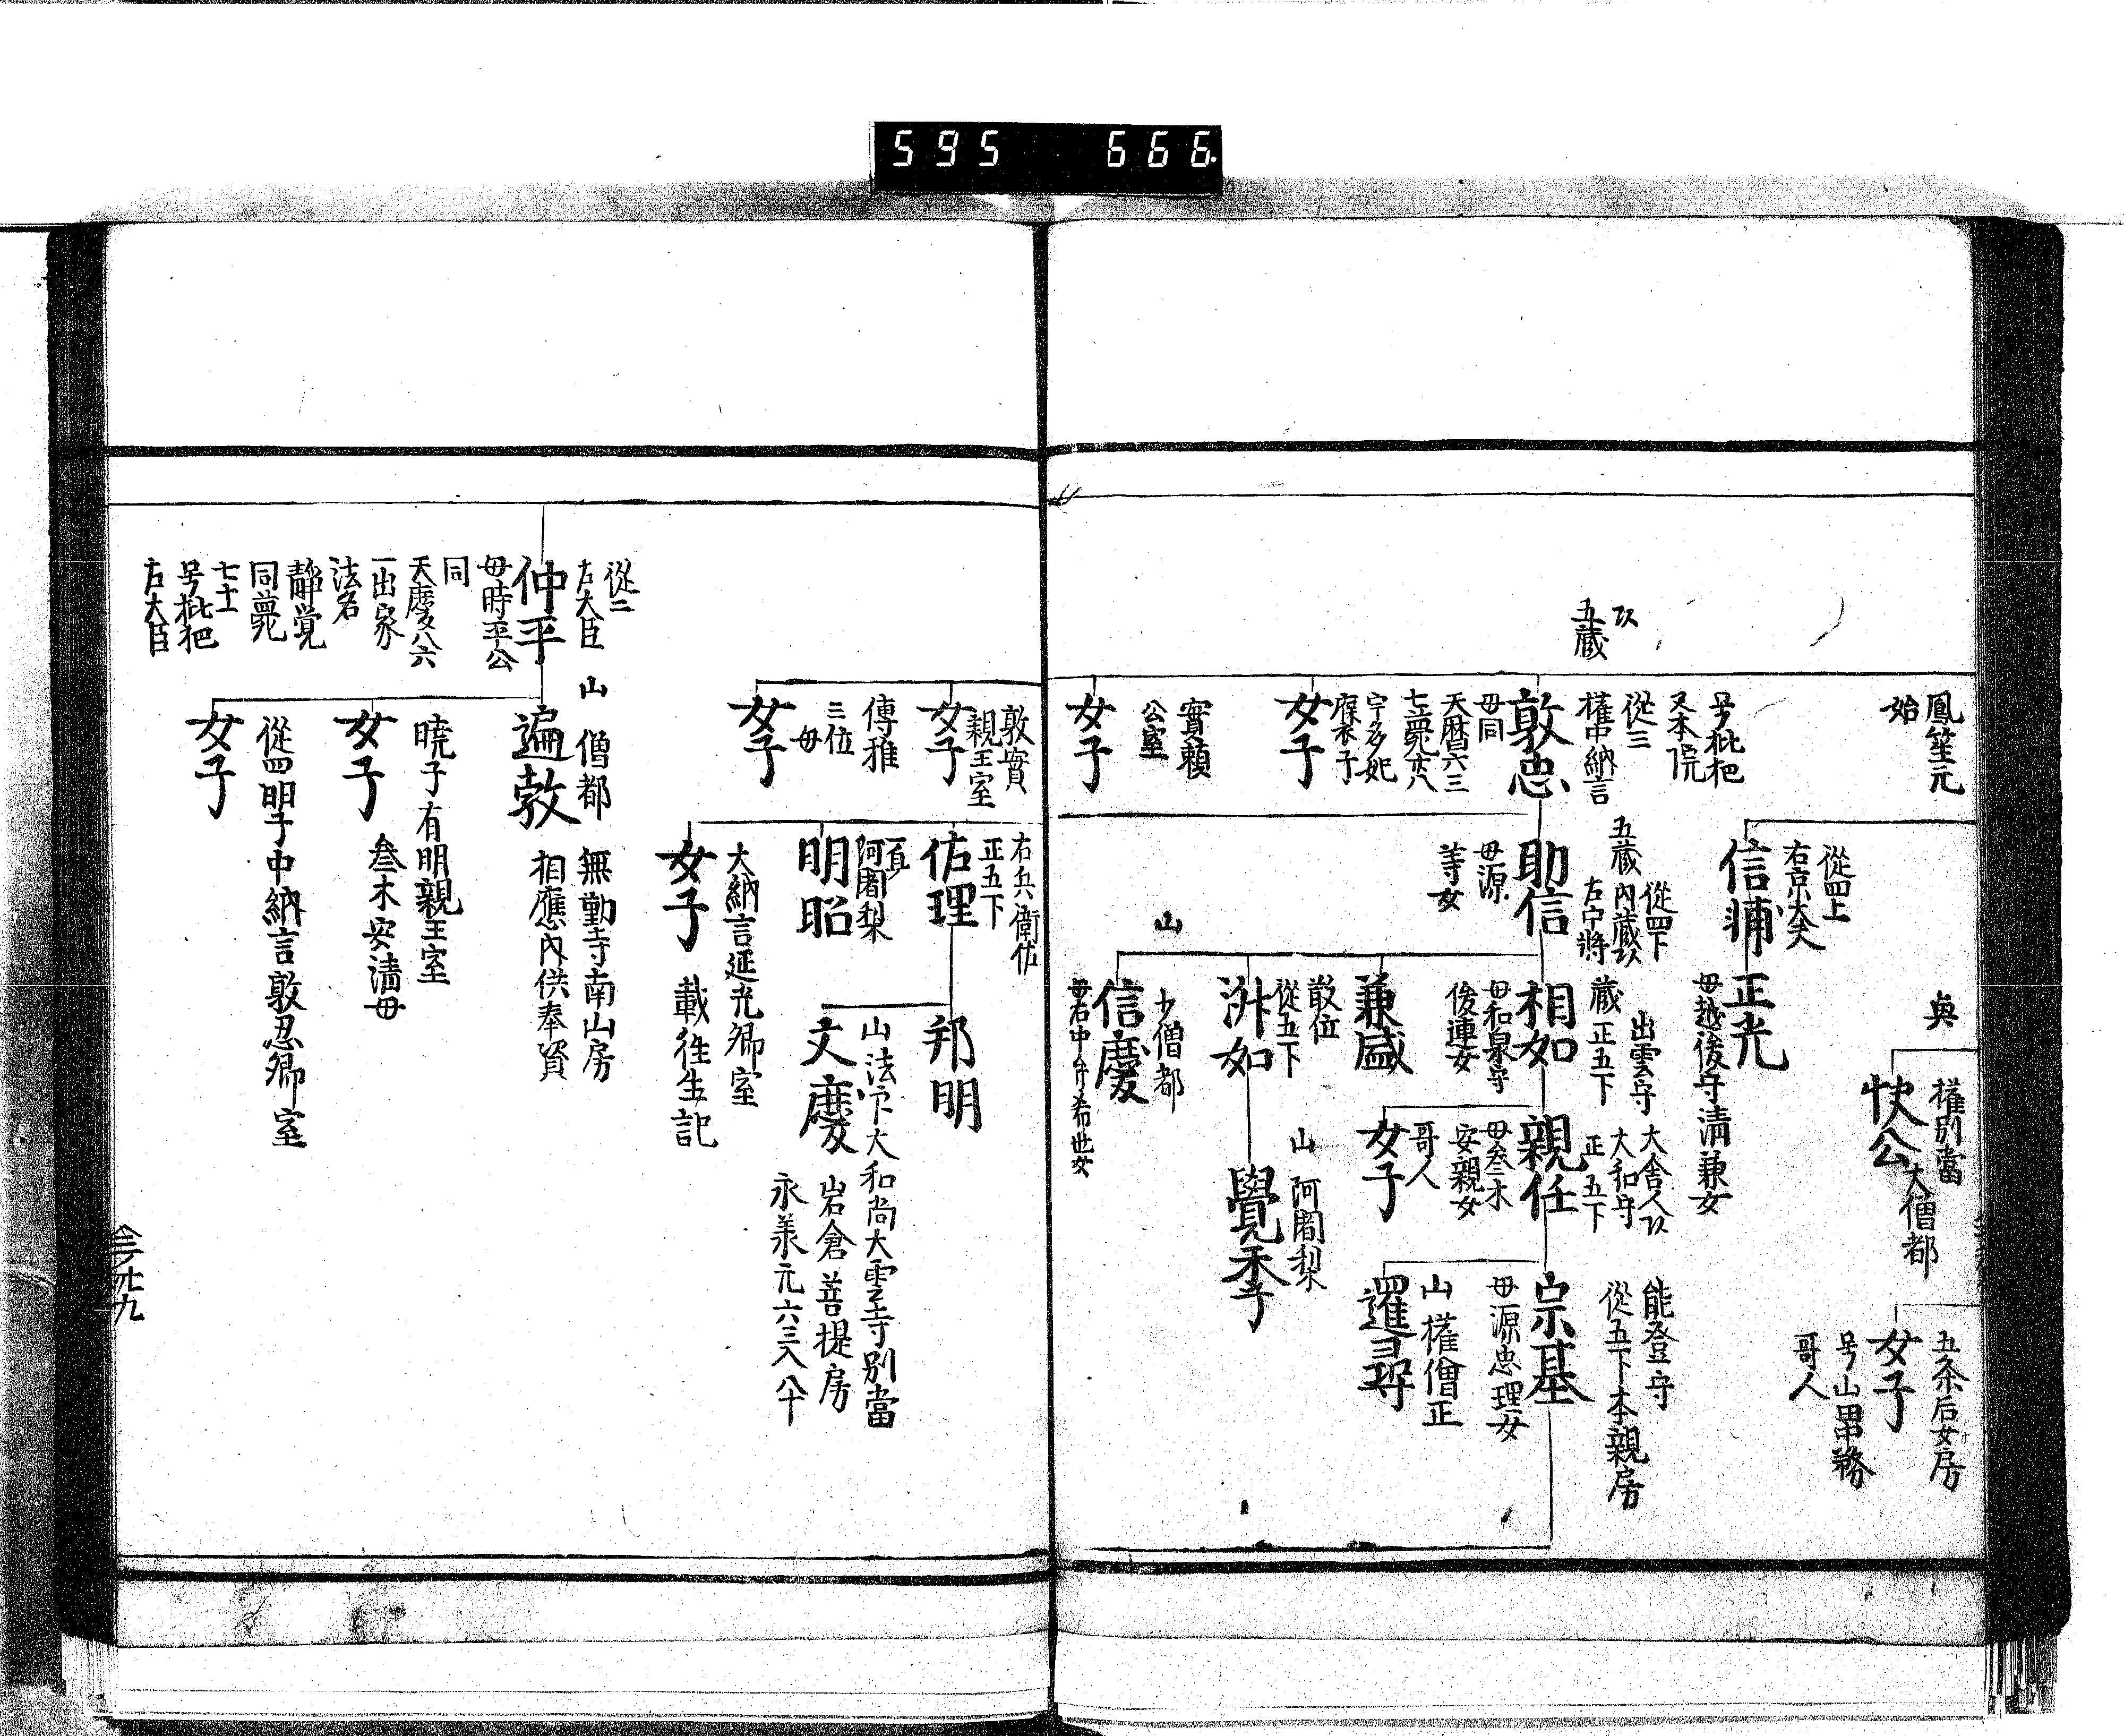 595 666
鳳笙元
始
與
権別當
快公
大僧都
五条后女房
女子
号山田中務
哥人
從四上
右京大夫
信輔
正光
母越後守清兼女
号枇杷
又本院
從三
権中納言
五蔵
敦忠
母同
天暦六三
七薨
宇多妃
女子
實頼
公室
女子
五蔵
從四下
内蔵
左中将
助信
母源
等女
出雲守
蔵正五下
相如
母和泉守
俊連女
大舎人
大和守
正五下
親任
母参木
安親女
能登守
從五下本親房
宗基
母源忠理女
山権僧正
暹尋
哥人
女子
兼盛
散位
從五下
山阿闍梨
山
少僧都
信慶
母右中弁希世女
敦實
親王室
女子
傳雅
三位
母
女子
右兵衛佐
正五下
佑理
邦明
阿闍梨
明昭
山法下大和尚大雲寺別當
文慶
岩倉菩提房
大納言延光卿室
女子
載往生記
從二
左大臣
仲平
母時平公
同
天慶八六
一出家
法名
静覚
同薨
七十一
号枇杷
左大臣
山僧都
遍敦
無動寺南山房
相應内供奉資
暁子有明親王室
女子
参木安清母
從四明子中納言敦忠卿室
女子